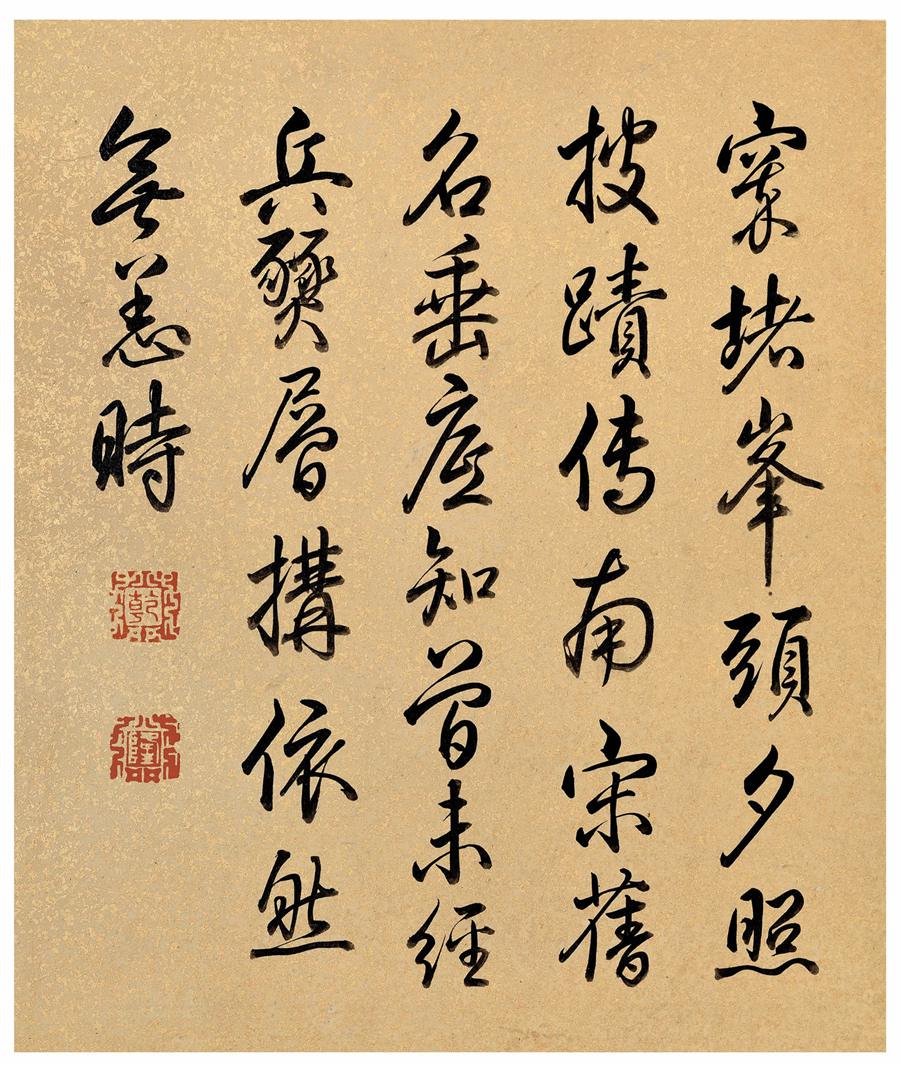 窣堵峯頭夕照
披蹟傳南宋舊
名垂應知曾未經
兵燹層構依然
無恙時
乾
隆